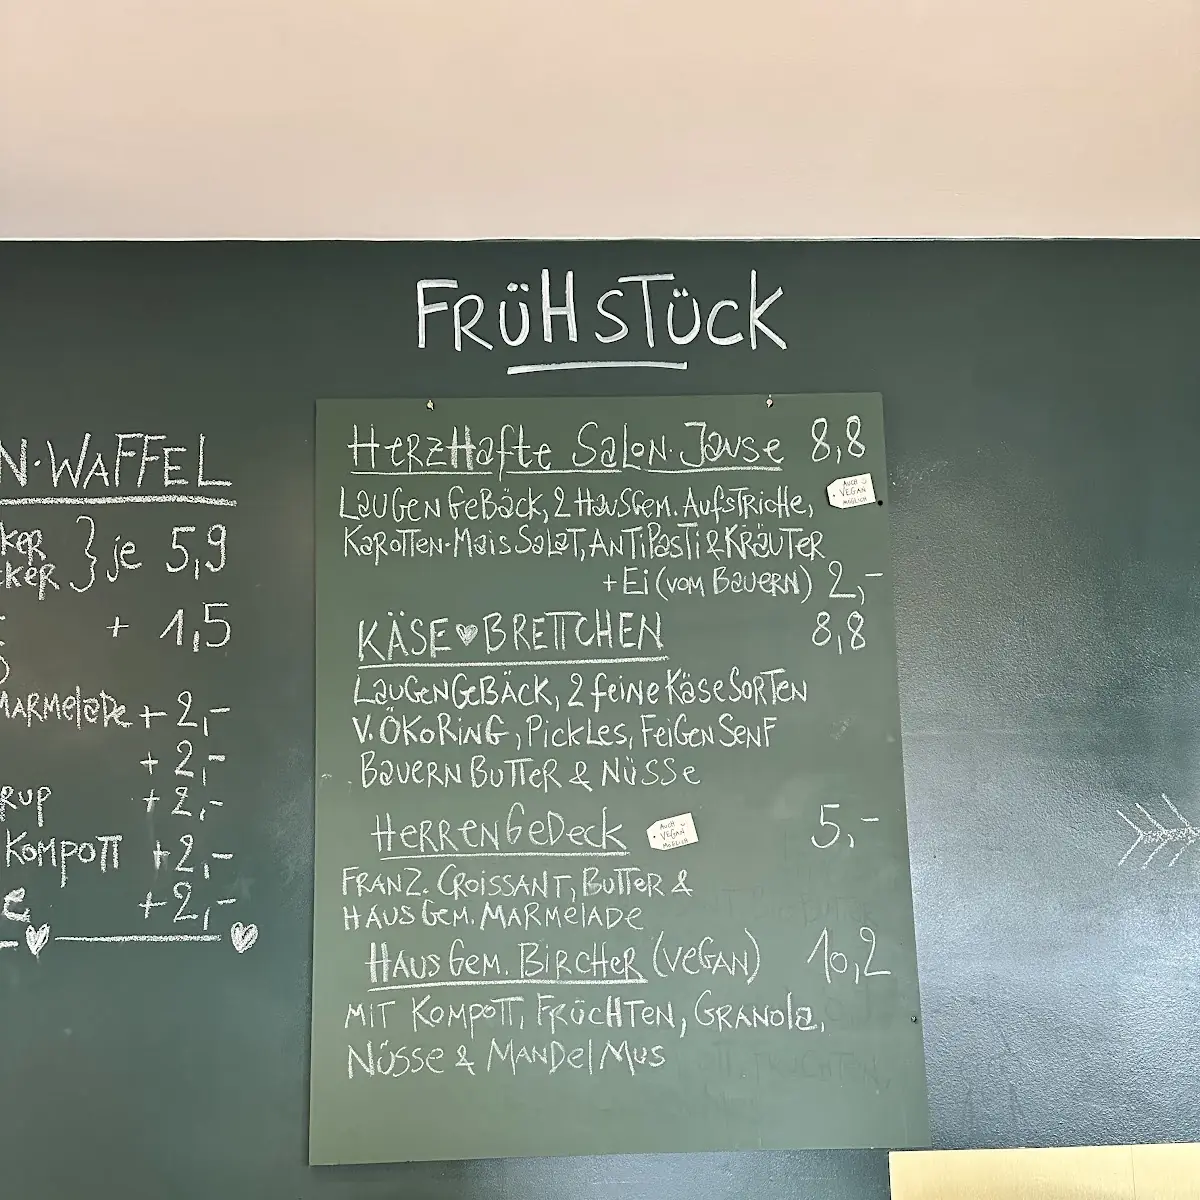 FRÜHSTÜCK
N·WAFFEL
KER } je 5,9
CKER
+ 1,5
MARMELADE + 2,-
+ 2,-
RUP + 2,-
KOMPOTT + 2,-
e +2,-
HERZHAFTE SALON·JAUSE 8,8
LAUGENGEBÄCK, 2 HAUSGEM. AUFSTRICHE,
AUCH VEGAN MÖGLICH
KAROTTEN-MAISSALAT, ANTIPASTI & KRÄUTER
+ EI (VOM BAUERN) 2,-
KÄSE ♥ BRETTCHEN 8,8
LAUGENGEBÄCK, 2 FEINE KÄSESORTEN
V. ÖKORING, PICKLES, FEIGENSENF
BAUERNBUTTER & NÜSSE
HERRENGEDECK 5,-
AUCH VEGAN MÖGLICH
FRANZ. CROISSANT, BUTTER &
HAUSGEM. MARMELADE
HAUSGEM. BIRCHER (VEGAN) 10,2
MIT KOMPOTT, FRÜCHTEN, GRANOLA,
NÜSSE & MANDELMUS